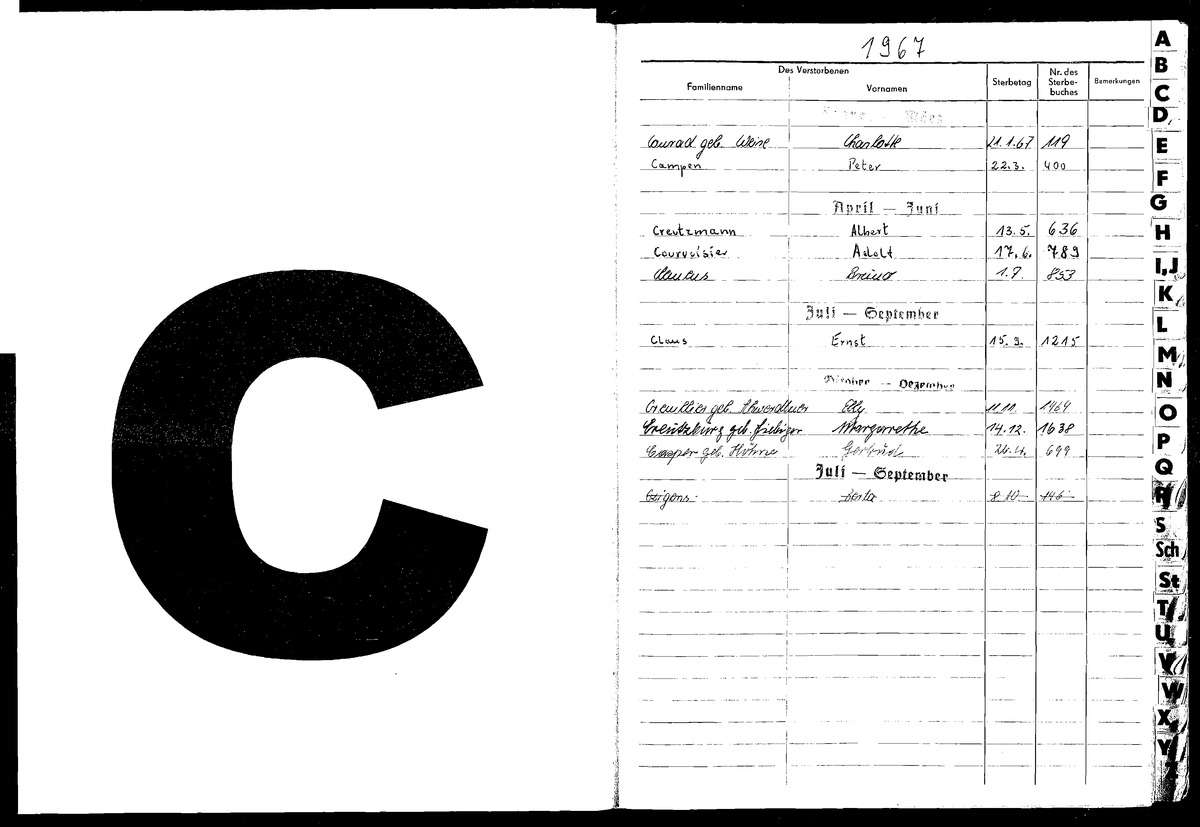 C
1967
Des Verstorbenen
Familienname Vornamen Sterbetag Nr. des Sterbe-buches Bemerkungen
Conrad geb. Weise Charlotte 21.1.67 119
Campen Peter 22.3. 400
April — Juni
Creutzmann Albert 13.5. 636
Courvoisier Adolf 17.6. 789
1.7. 853
Juli — September
Claus Ernst 15.9. 1215
Oktober — Dezember
geb. Elly 11.11. 1464
Creutzburg geb. Fiebiger Margarethe 14.12. 1638
Casper geb. Höhne Gertrud 26.4. 699
Juli — September
8.10. 146
A
B
C
D
E
F
G
H
I,J
K
L
M
N
O
P
Q
R
S
Sch
St
T
U
V
W
X
Y
Z